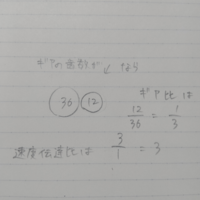 ギアの歯数が 36 12 なら
ギア比は
12/36 = 1/3
速度伝達比は 3/1 = 3